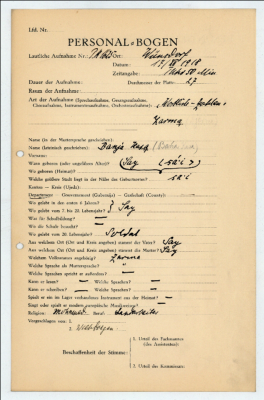 Lfd. Nr.
PERSONAL-BOGEN
Lautliche Aufnahme Nr.: PK 1625 Ort: Wünsdorf
Datum: 1918
Zeitangabe: 1 Uhr 50 Min
Dauer der Aufnahme: Durchmesser der Platte: 27
Raum der Aufnahme:
Art der Aufnahme (Sprechaufnahme, Gesangsaufnahme,
Choraufnahme, Instrumentenaufnahme, Orchesteraufnahme):
Zarma
Name (in der Muttersprache geschrieben):
Name (lateinisch geschrieben):
Vorname:
Wann geboren (oder ungefähres Alter)? Say
Wo geboren (Heimat)?
Welche größere Stadt liegt in der Nähe des Geburtsortes?
Kanton — Kreis (Ujedz):
Department — Gouvernement (Gubernija) — Grafschaft (County):
Wo gelebt in den ersten 6 Jahren?
Wo gelebt vom 7. bis 20. Lebensjahr? Say
Was für Schulbildung? —
Wo die Schule besucht? —
Wo gelebt vom 20. Lebensjahr? Soldat
Aus welchem Ort (Ort und Kreis angeben) stammt der Vater? Say
Aus welchem Ort (Ort und Kreis angeben) stammt die Mutter? Say
Welchem Volksstamm angehörig? Zarma
Welche Sprache als Muttersprache? "
Welche Sprachen spricht er außerdem? —
Kann er lesen? — Welche Sprachen? —
Kann er schreiben? — Welche Sprachen? —
Spielt er ein im Lager vorhandenes Instrument aus der Heimat? —
Singt oder spielt er moderne europäische Musikweisen? —
Religion: Beruf:
Vorgeschlagen von: 1.
2.
Beschaffenheit der Stimme:
1. Urteil des Fachmannes
(des Assistenten):
2. Urteil des Kommissars: